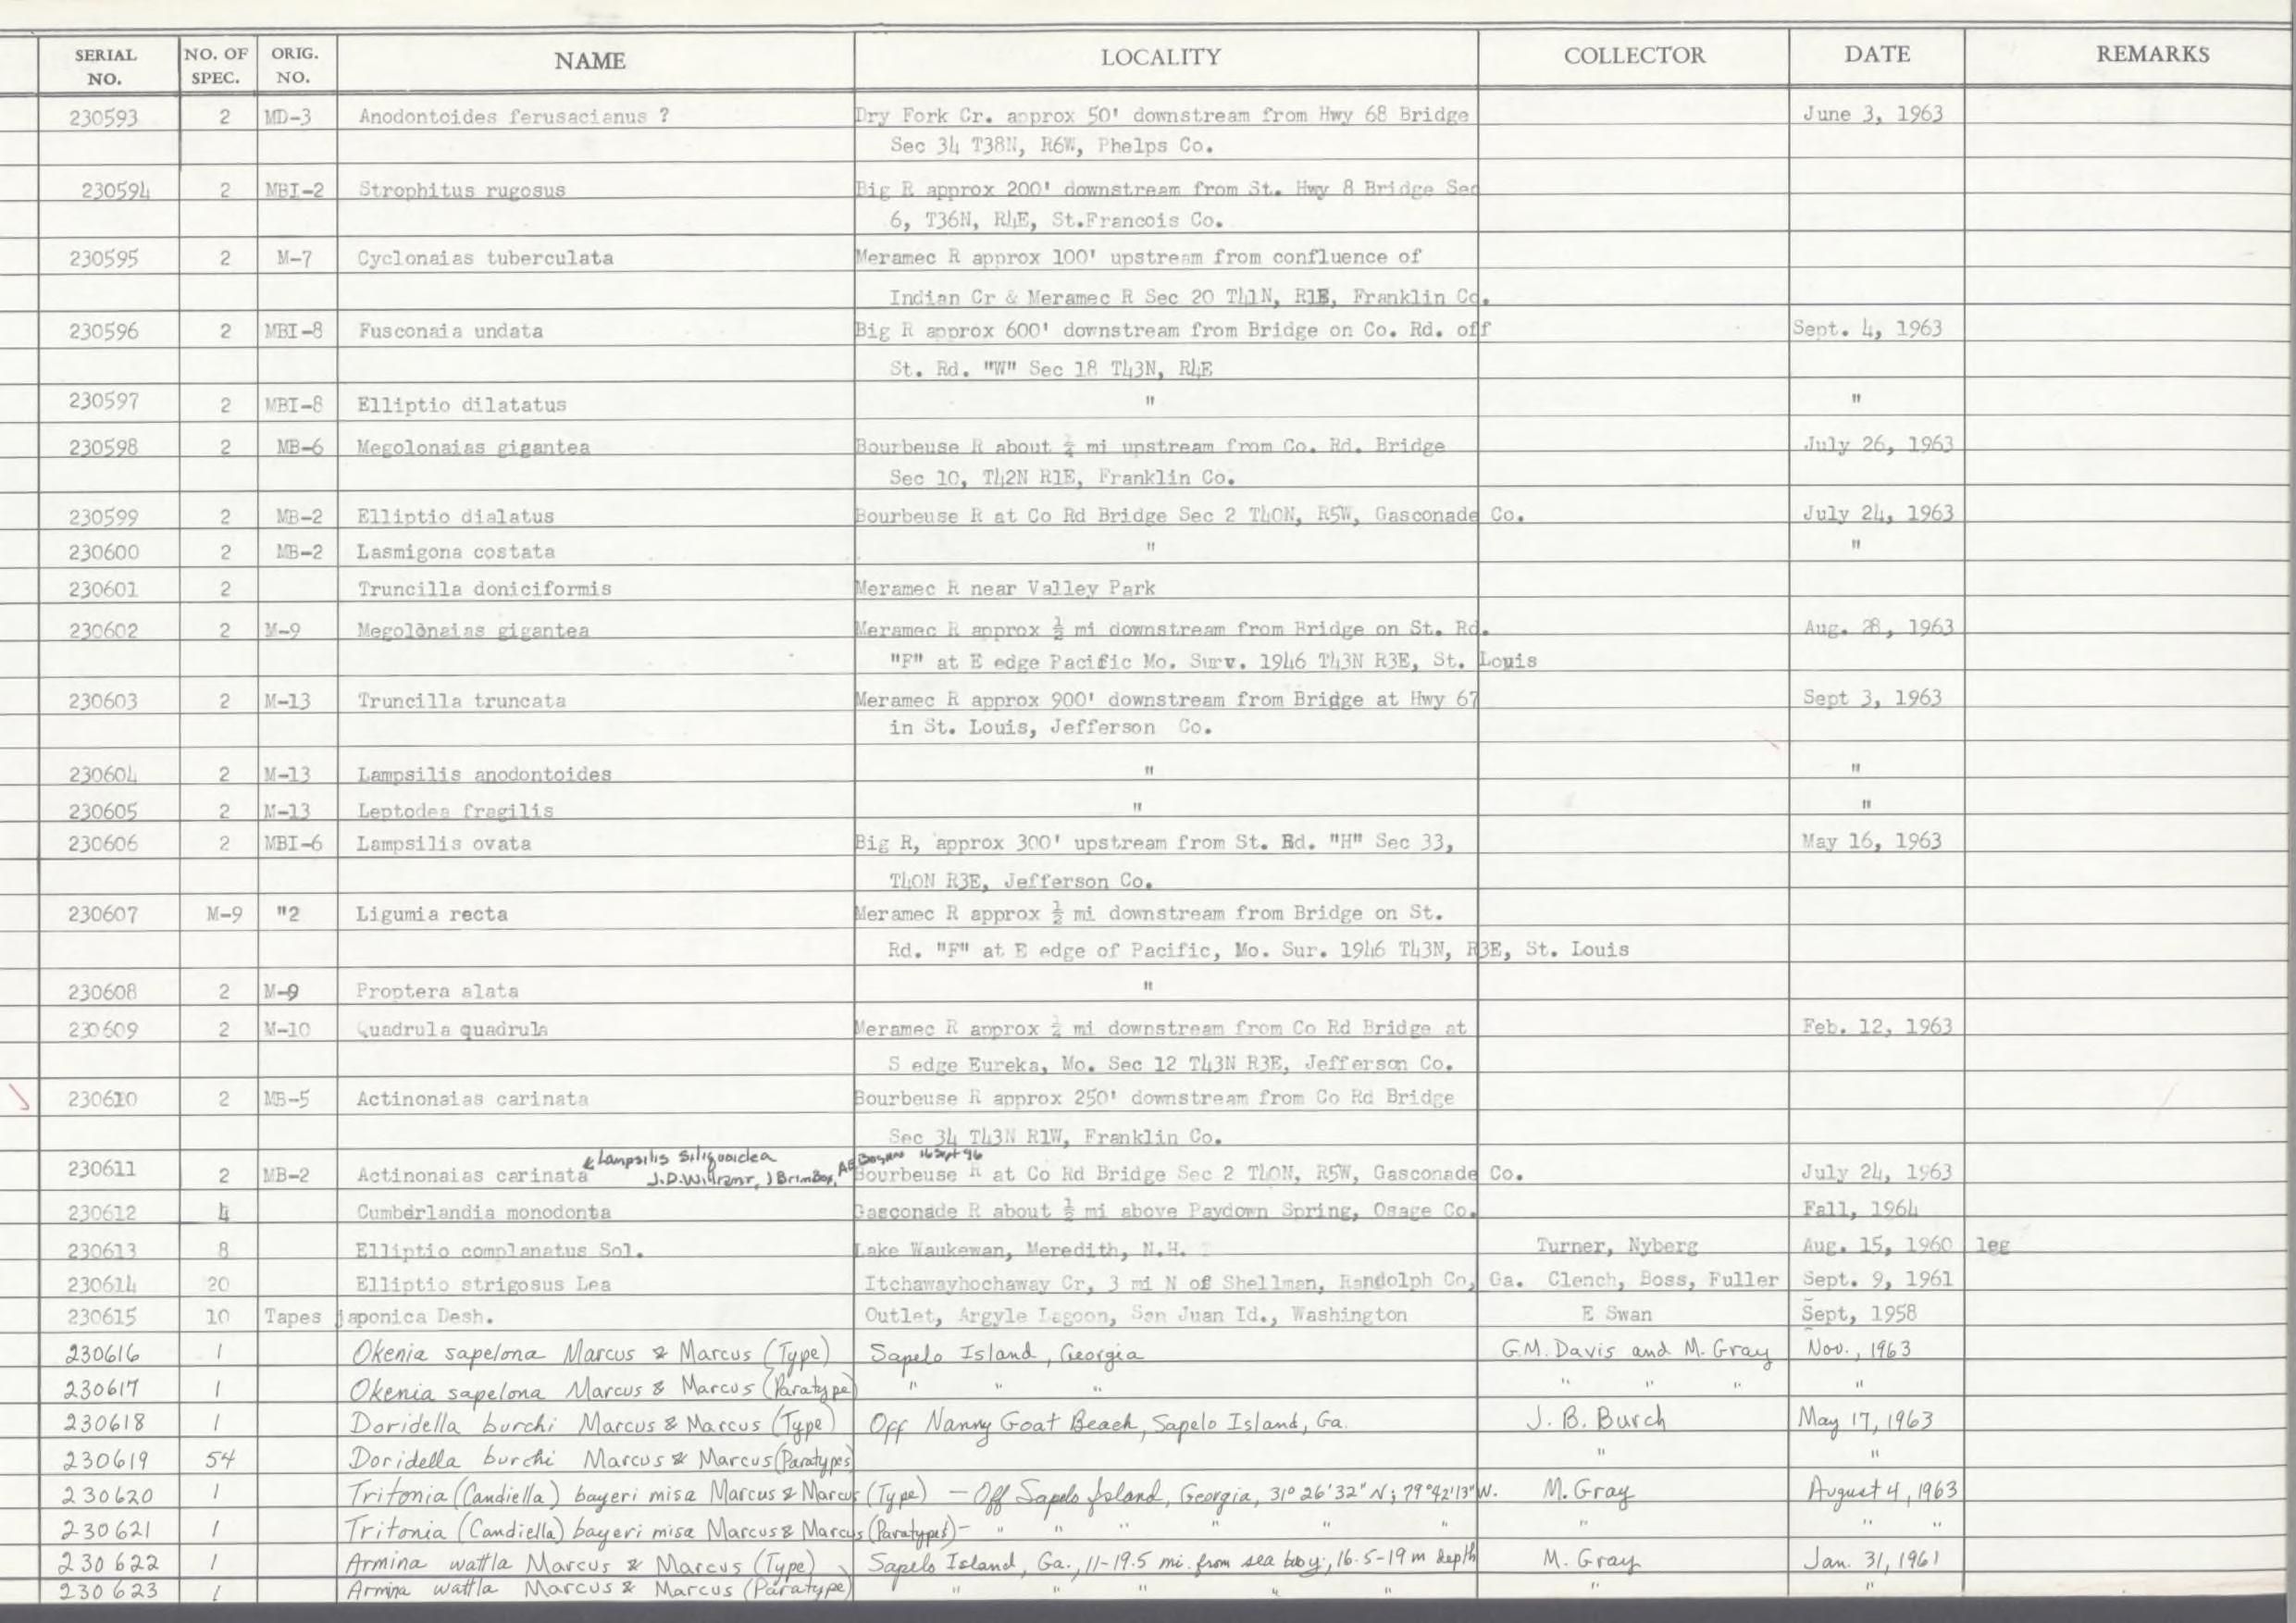 SERIAL NO. NO. OF SPEC. ORIG. NO. NAME LOCALITY COLLECTOR DATE REMARKS
230593 2 MD-3 Anodontoides ferusacianus ? Dry Fork Cr. approx 50' downstream from Hwy 68 Bridge June 3, 1963
Sec 34 T38N, R6W, Phelps Co.
230594 2 MBI-2 Strophitus rugosus Big R approx 200' downstream from St. Hwy 8 Bridge Sec
6, T36N, R4E, St.Francois Co.
230595 2 M-7 Cyclonaias tuberculata Meramec R approx 100' upstream from confluence of
Indian Cr & Meramec R Sec 20 T41N, R1E, Franklin Co.
230596 2 MBI-8 Fusconaia undata Big R approx 600' downstream from Bridge on Co. Rd. off Sept. 4, 1963
St. Rd. "W" Sec 18 T43N, R4E
230597 2 MBI-8 Elliptio dilatatus " "
230598 2 MB-6 Megolonaias gigantea Bourbeuse R about ¼ mi upstream from Co. Rd. Bridge July 26, 1963
Sec 10, T42N R1E, Franklin Co.
230599 2 MB-2 Elliptio dialatus Bourbeuse R at Co Rd Bridge Sec 2 T40N, R5W, Gasconade Co. July 24, 1963
230600 2 MB-2 Lasmigona costata " "
230601 2 Truncilla doniciformis Meramec R near Valley Park
230602 2 M-9 Megolonaias gigantea Meramec R approx ½ mi downstream from Bridge on St. Rd. Aug. 28, 1963
"F" at E edge Pacific Mo. Surv. 1946 T43N R3E, St. Louis
230603 2 M-13 Truncilla truncata Meramec R approx 900' downstream from Bridge at Hwy 67 Sept 3, 1963
in St. Louis, Jefferson Co.
230604 2 M-13 Lampsilis anodontoides " "
230605 2 M-13 Leptodea fragilis " "
230606 2 MBI-6 Lampsilis ovata Big R, approx 300' upstream from St. Rd. "H" Sec 33, May 16, 1963
T40N R3E, Jefferson Co.
230607 M-9 "2 Ligumia recta Meramec R approx ½ mi downstream from Bridge on St.
Rd. "F" at E edge of Pacific, Mo. Sur. 1946 T43N, R3E, St. Louis
230608 2 M-9 Proptera alata "
230609 2 M-10 Quadrula quadrula Meramec R approx ¼ mi downstream from Co Rd Bridge at Feb. 12, 1963
S edge Eureka, Mo. Sec 12 T43N R3E, Jefferson Co.
230610 2 MB-5 Actinonaias carinata Bourbeuse R approx 250' downstream from Co Rd Bridge
Sec 34 T43N R1W, Franklin Co.
& Lampsilis siliquoidea AE Bogan 16 Sept 96
230611 2 MB-2 Actinonaias carinata J.D. Williams, J Brimbox, Bourbeuse R at Co Rd Bridge Sec 2 T40N, R5W, Gasconade Co. July 24, 1963
230612 4 Cumberlandia monodonta Gasconade R about ½ mi above Paydown Spring, Osage Co. Fall, 1964
230613 8 Elliptio complanatus Sol. Lake Waukewan, Meredith, N.H. Turner, Nyberg Aug. 15, 1960 leg
230614 20 Elliptio strigosus Lea Itchawayhochaway Cr, 3 mi N of Shellman, Randolph Co, Ga. Clench, Boss, Fuller Sept. 9, 1961
230615 10 Tapes japonica Desh. Outlet, Argyle Lagoon, San Juan Id., Washington E Swan Sept, 1958
230616 1 Okenia sapelona Marcus & Marcus (Type) Sapelo Island, Georgia G.M. Davis and M. Gray Nov., 1963
230617 1 Okenia sapelona Marcus & Marcus (Paratype) " " " " " " "
230618 1 Doridella burchi Marcus & Marcus (Type) Off Nanny Goat Beach, Sapelo Island, Ga. J. B. Burch May 17, 1963
230619 54 Doridella burchi Marcus & Marcus (Paratypes) " "
230620 1 Tritonia (Candiella) bayeri misa Marcus & Marcus (Type) — Off Sapelo Island, Georgia, 31° 26' 32" N; 79° 42' 13" W. M. Gray August 4, 1963
230621 1 Tritonia (Candiella) bayeri misa Marcus & Marcus (Paratypes) - " " " " " " " " "
230622 1 Armina wattla Marcus & Marcus (Type) Sapelo Island, Ga., 11-19.5 mi. from sea buoy, 16.5-19 m depth M. Gray Jan. 31, 1961
230623 1 Armina wattla Marcus & Marcus (Paratype) " " " " " " "